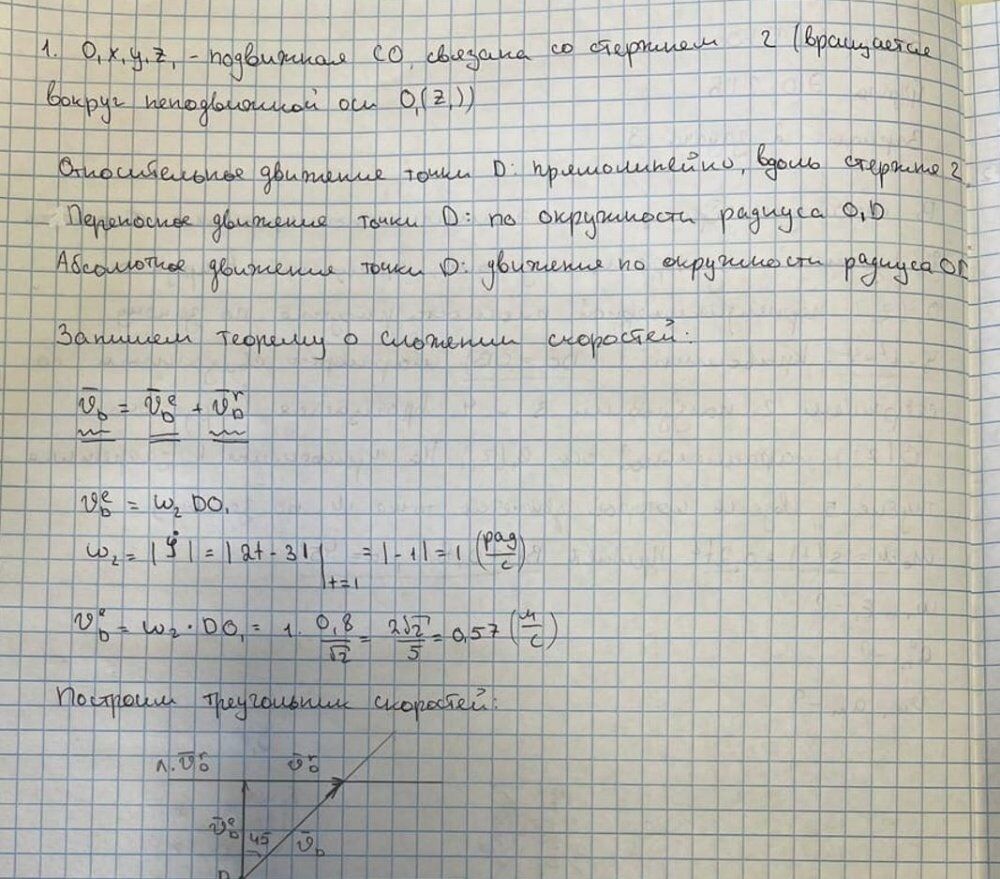 1. O₁x₁y₁z₁ - подвижная СО, связана со стержнем 2 (вращается
вокруг неподвижной оси O₁(z₁))
Относительное движение точки D: прямолинейно, вдоль стержня 2.
Переносное движение точки D: по окружности радиуса O₁D
Абсолютное движение точки D: движение по окружности радиуса
Запишем теорему о сложении скоростей:
v̄_D = v̄_D^e + v̄_D^r
v_D^e = ω₂ DO₁
ω₂ = |φ̇| = |2t - 3| |_{t=1} = |-1| = 1 (рад/с)
v_D^e = ω₂ · DO₁ = 1 · 0,8/√2 = 2√2/5 = 0,57 (м/с)
Построим треугольник скоростей:
л. v̄_D^r v̄_D^r
v̄_D^e 45 v̄_D
D